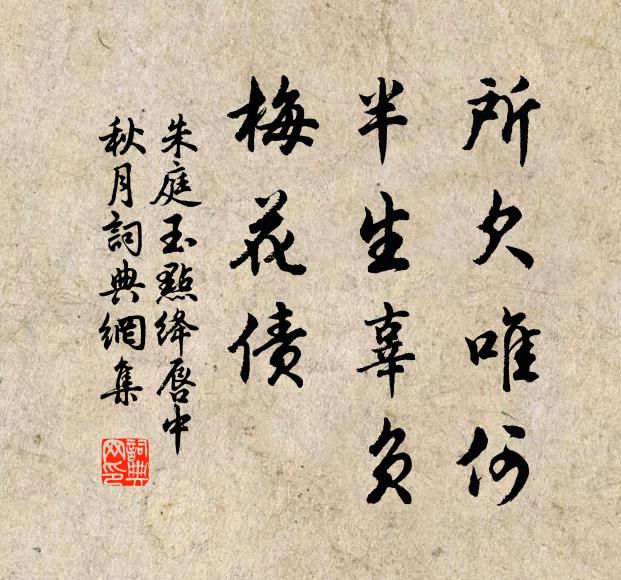 所欠唯何
半生辜负
梅花债
朱庭玉點絳唇中
秋月詞典網集
詞典
网印